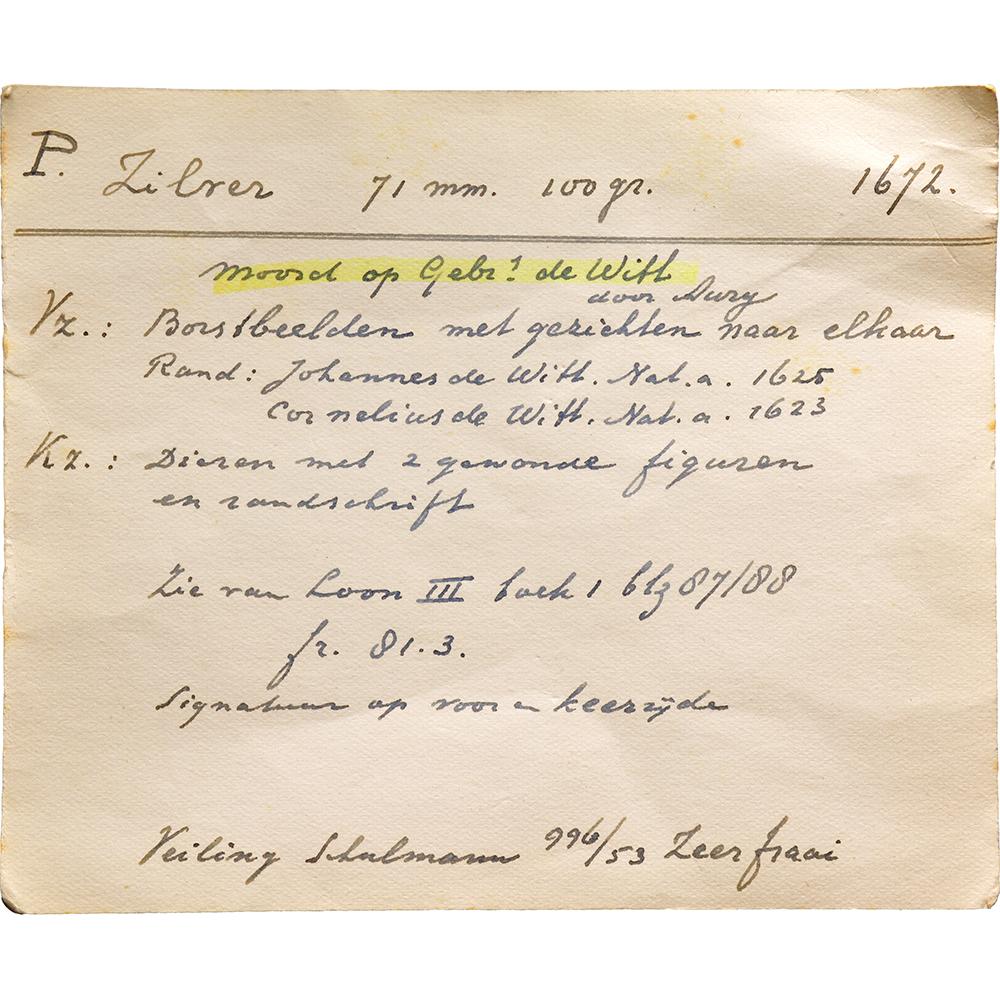 P. Zilver 71 mm. 100 gr. 1672.
Moord op Gebrs de Witt
door Aury
Vz.: Borstbeelden met gezichten naar elkaar
Rand: Johannes de Witt. Nat. a. 1625
Cornelius de Witt. Nat. a. 1623
Kz.: Dieren met 2 gewonde figuren
en randschrift
Zie van Loon III boek 1 blz 87/88
fr. 81.3.
Signatuur op voor en keerzijde
Veiling Schulmann 996/53 Zeer fraai